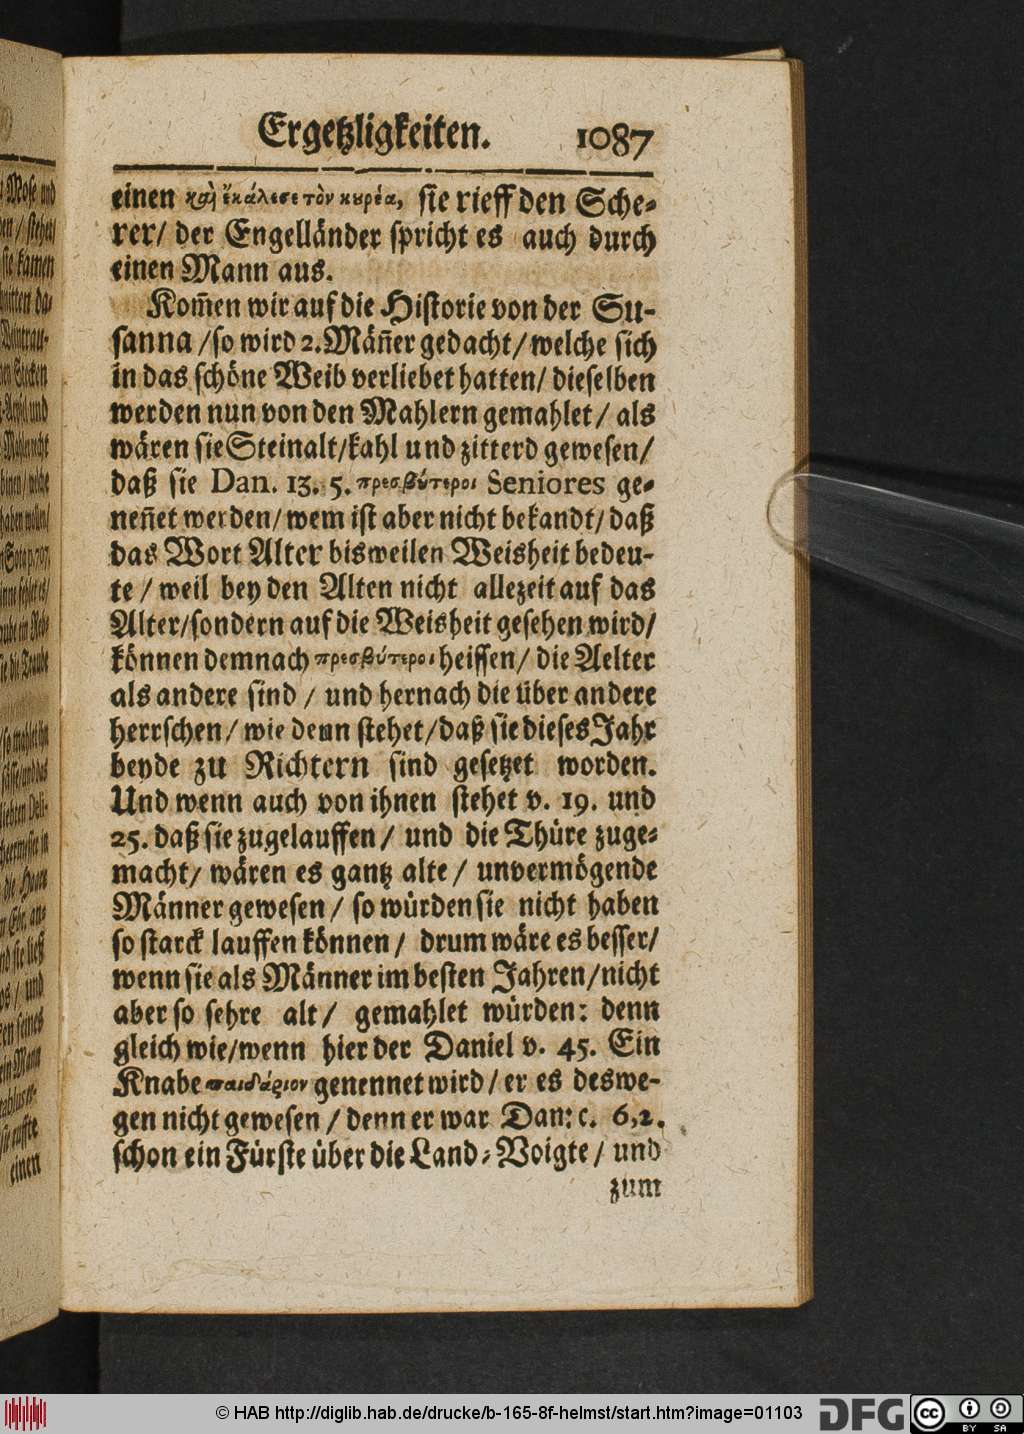 Ergetzligkeiten. 1087
einen καὶ ἐκάλεσε τὸν κυρέα, sie rieff den Sche-
rer/ der Engelländer spricht es auch durch
einen Mann aus.
Kom̃en wir auf die Historie von der Su-
sanna /so wird 2. Mäñer gedacht/ welche sich
in das schöne Weib verliebet hatten/ dieselben
werden nun von den Mahlern gemahlet/ als
wären sie Steinalt/kahl und zitterd gewesen/
daß sie Dan. 13. 5. πρεσβύτεροι Seniores ge-
neñet werden/ wem ist aber nicht bekandt/ daß
das Wort Alter bisweilen Weisheit bedeu-
te / weil bey den Alten nicht allezeit auf das
Alter/sondern auf die Weisheit gesehen wird/
können demnach πρεσβύτεροι heissen/ die Aelter
als andere sind / und hernach die über andere
herrschen/ wie denn stehet/daß sie dieses Jahr
beyde zu Richtern sind gesetzet worden.
Und wenn auch von ihnen stehet v. 19. und
25. daß sie zugelauffen/ und die Thüre zuge-
macht/ wären es gantz alte/ unvermögende
Männer gewesen/ so würden sie nicht haben
so starck lauffen können/ drum wäre es besser/
wenn sie als Männer im besten Jahren/nicht
aber so sehre alt/ gemahlet würden: denn
gleich wie/wenn hier der Daniel v. 45. Ein
Knabe παιδάριον genennet wird/ er es deswe-
gen nicht gewesen / denn er war Dan: c. 6,2.
schon ein Fürste über die Land-Voigte/ und
zum
einen
© HAB http://diglib.hab.de/drucke/b-165-8f-helmst/start.htm?image=01103
DFG
cc
BY SA